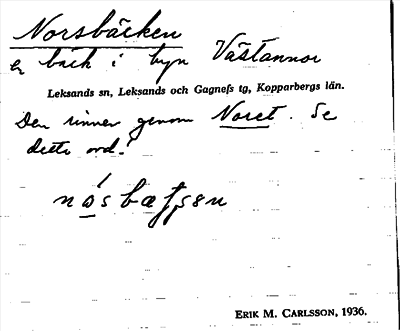 Norsbäcken
en bäck i byn Västannor
Leksands sn, Leksands och Gagnefs tg, Kopparbergs län.
Den rinner genom Noret. Se
detta ord!
ERIK M. CARLSSON, 1936.